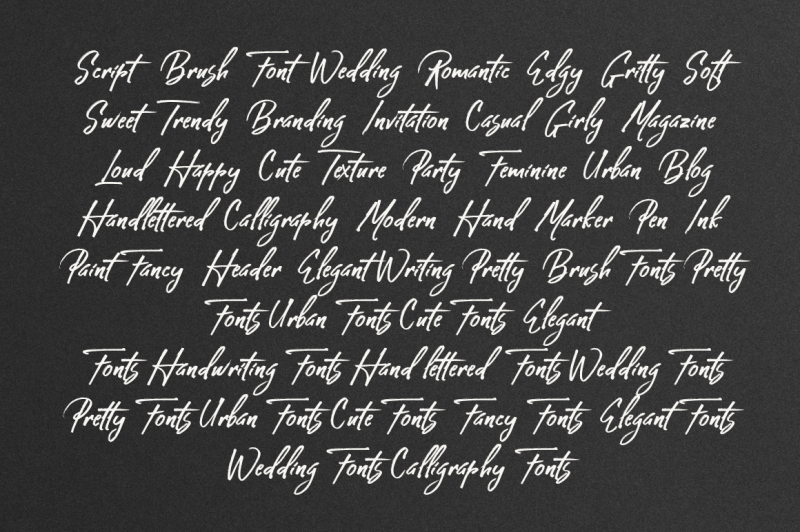 Script Brush Font Wedding Romantic Edgy Gritty Soft
Sweet Trendy Branding Invitation Casual Girly Magazine
Loud Happy Cute Texture Party Feminine Urban Blog
Handlettered Calligraphy Modern Hand Marker Pen Ink
Paint Fancy Header Elegant Writing Pretty Brush Fonts Pretty
Fonts Urban Fonts Cute Fonts Elegant
Fonts Handwriting Fonts Hand lettered Fonts Wedding Fonts
Pretty Fonts Urban Fonts Cute Fonts Fancy Fonts Elegant Fonts
Wedding Fonts Calligraphy Fonts